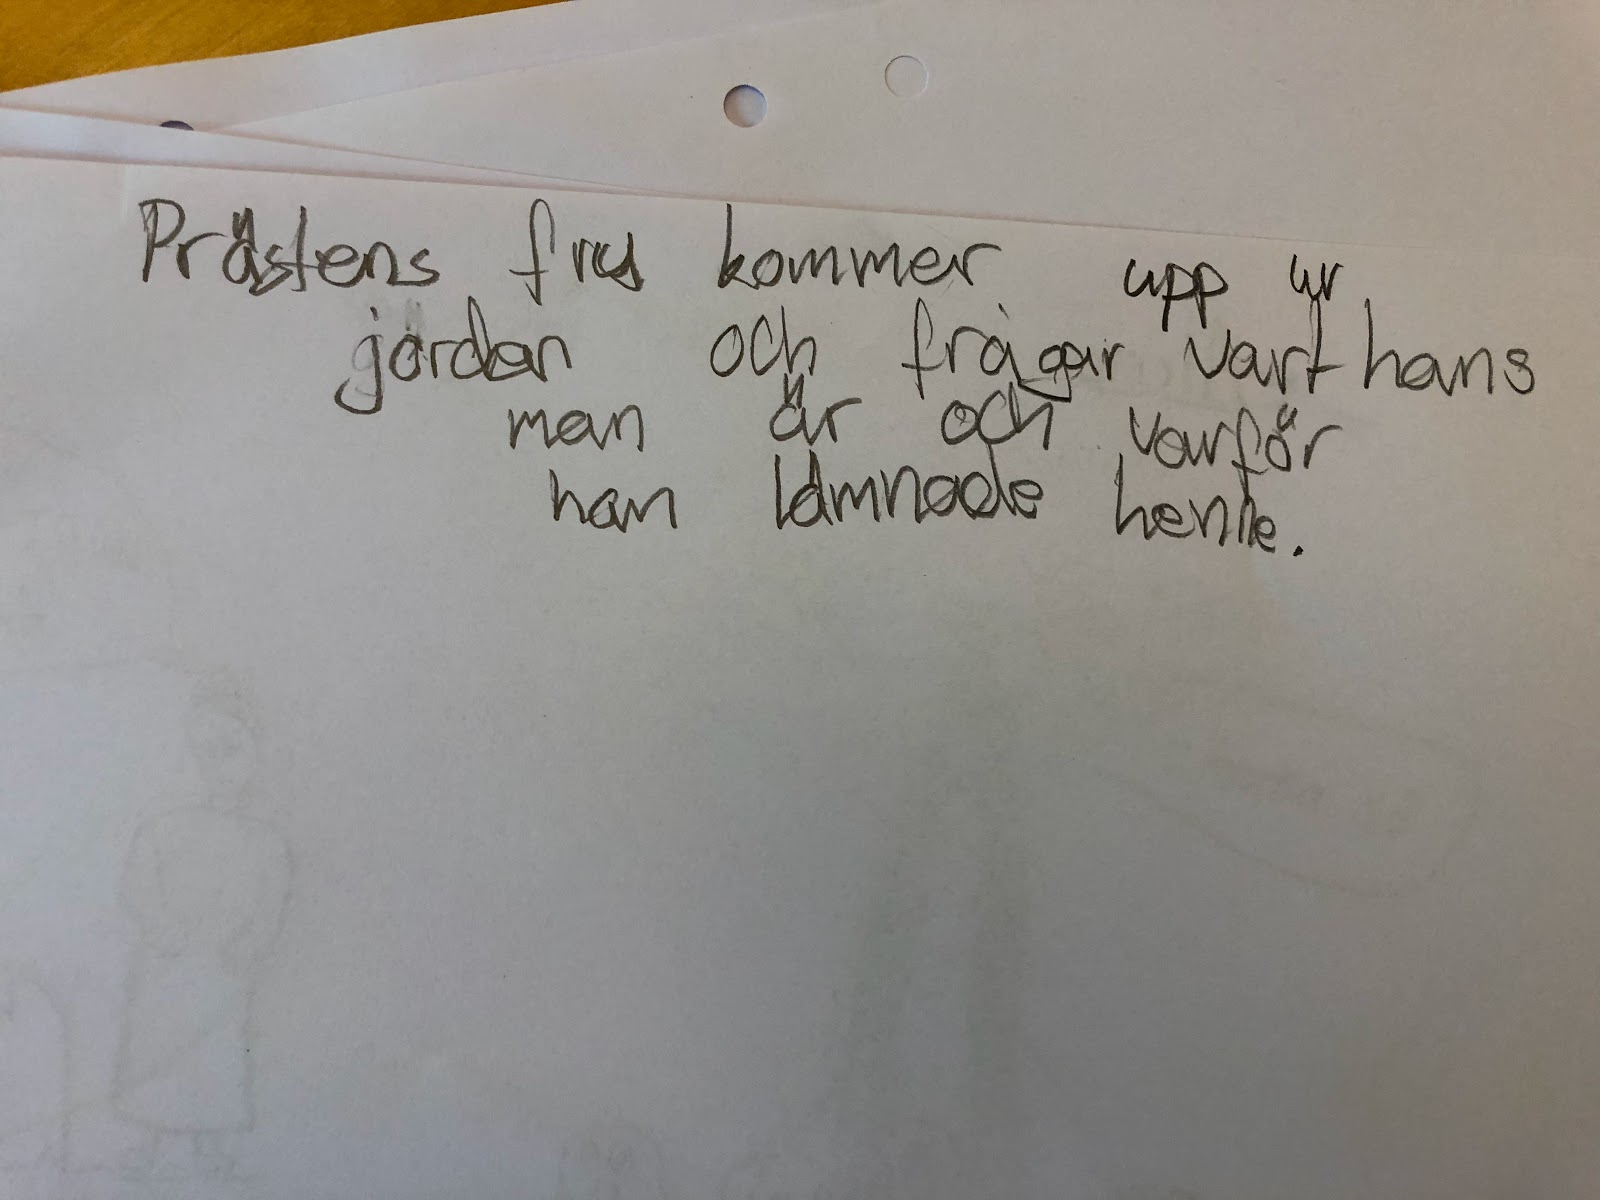 Prästens fru kommer upp ur
jorden och frågar vart hans
man är och varför
han lämnade henne.